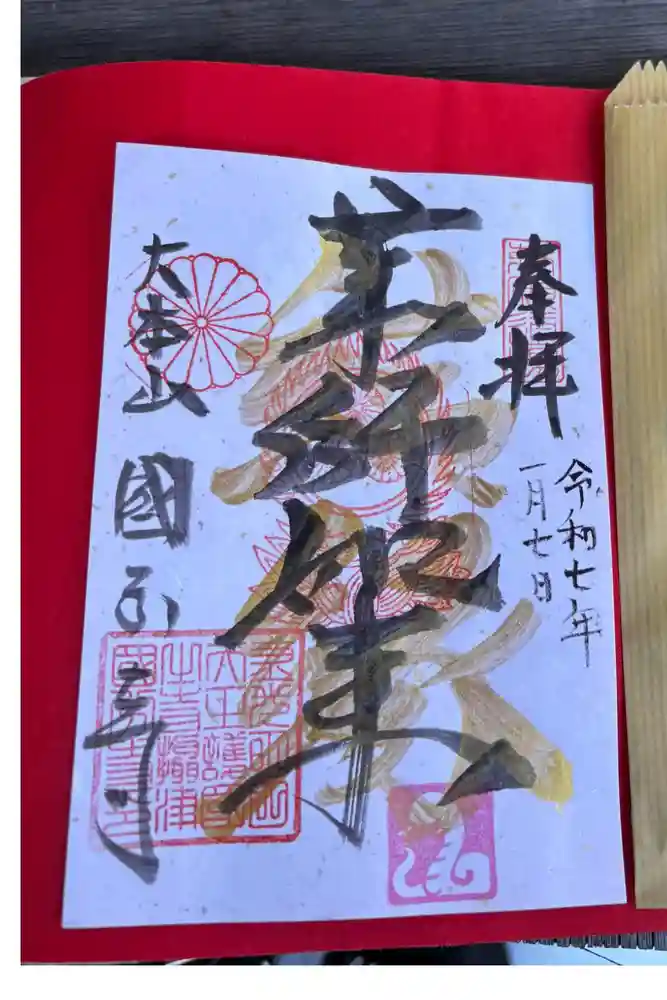 奉拝
令和七年
一月七日
薬師如来
大本山 國分寺